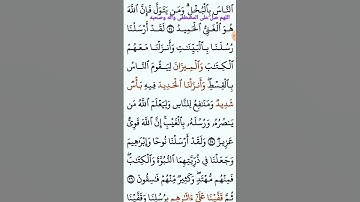 ٱلنَّاسَ بِٱلْبُخْلِ ۗ وَمَن يَتَوَلَّ فَإِنَّ ٱللَّهَ
اللهم صل على المصطفى وآله وصحبه
هُوَ ٱلْغَنِىُّ ٱلْحَمِيدُ ۝ لَقَدْ أَرْسَلْنَا
رُسُلَنَا بِٱلْبَيِّنَٰتِ وَأَنزَلْنَا مَعَهُمُ
ٱلْكِتَٰبَ وَٱلْمِيزَانَ لِيَقُومَ ٱلنَّاسُ
بِٱلْقِسْطِ ۖ وَأَنزَلْنَا ٱلْحَدِيدَ فِيهِ بَأْسٌ
شَدِيدٌ وَمَنَٰفِعُ لِلنَّاسِ وَلِيَعْلَمَ ٱللَّهُ مَن
يَنصُرُهُۥ وَرُسُلَهُۥ بِٱلْغَيْبِ ۚ إِنَّ ٱللَّهَ قَوِىٌّ
عَزِيزٌ ۝ وَلَقَدْ أَرْسَلْنَا نُوحًا وَإِبْرَٰهِيمَ
وَجَعَلْنَا فِى ذُرِّيَّتِهِمَا ٱلنُّبُوَّةَ وَٱلْكِتَٰبَ ۖ
فَمِنْهُم مُّهْتَدٍ ۖ وَكَثِيرٌ مِّنْهُمْ فَٰسِقُونَ ۝
ثُمَّ قَفَّيْنَا عَلَىٰٓ ءَاثَٰرِهِم بِرُسُلِنَا وَقَفَّيْنَا